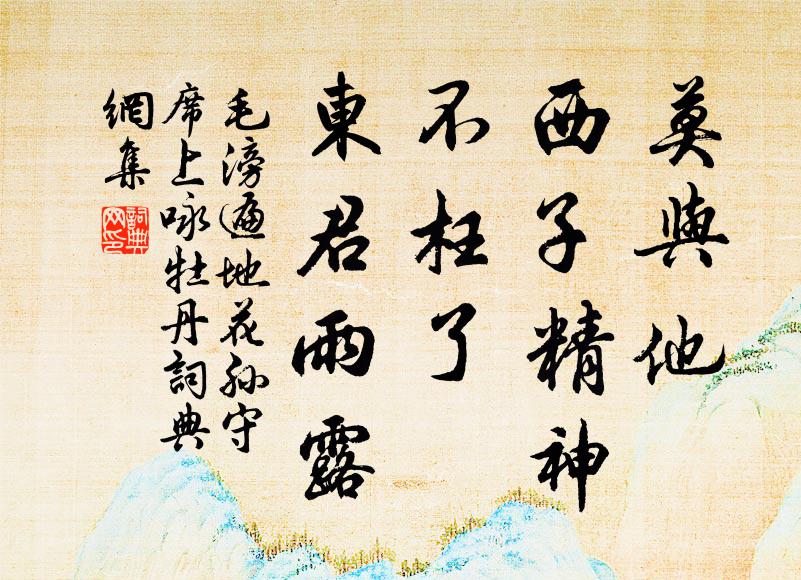 莫與他
西子精神
不枉了
東君雨露
毛滂遍地花孫守
席上咏牡丹詞典
網集
詞典網印